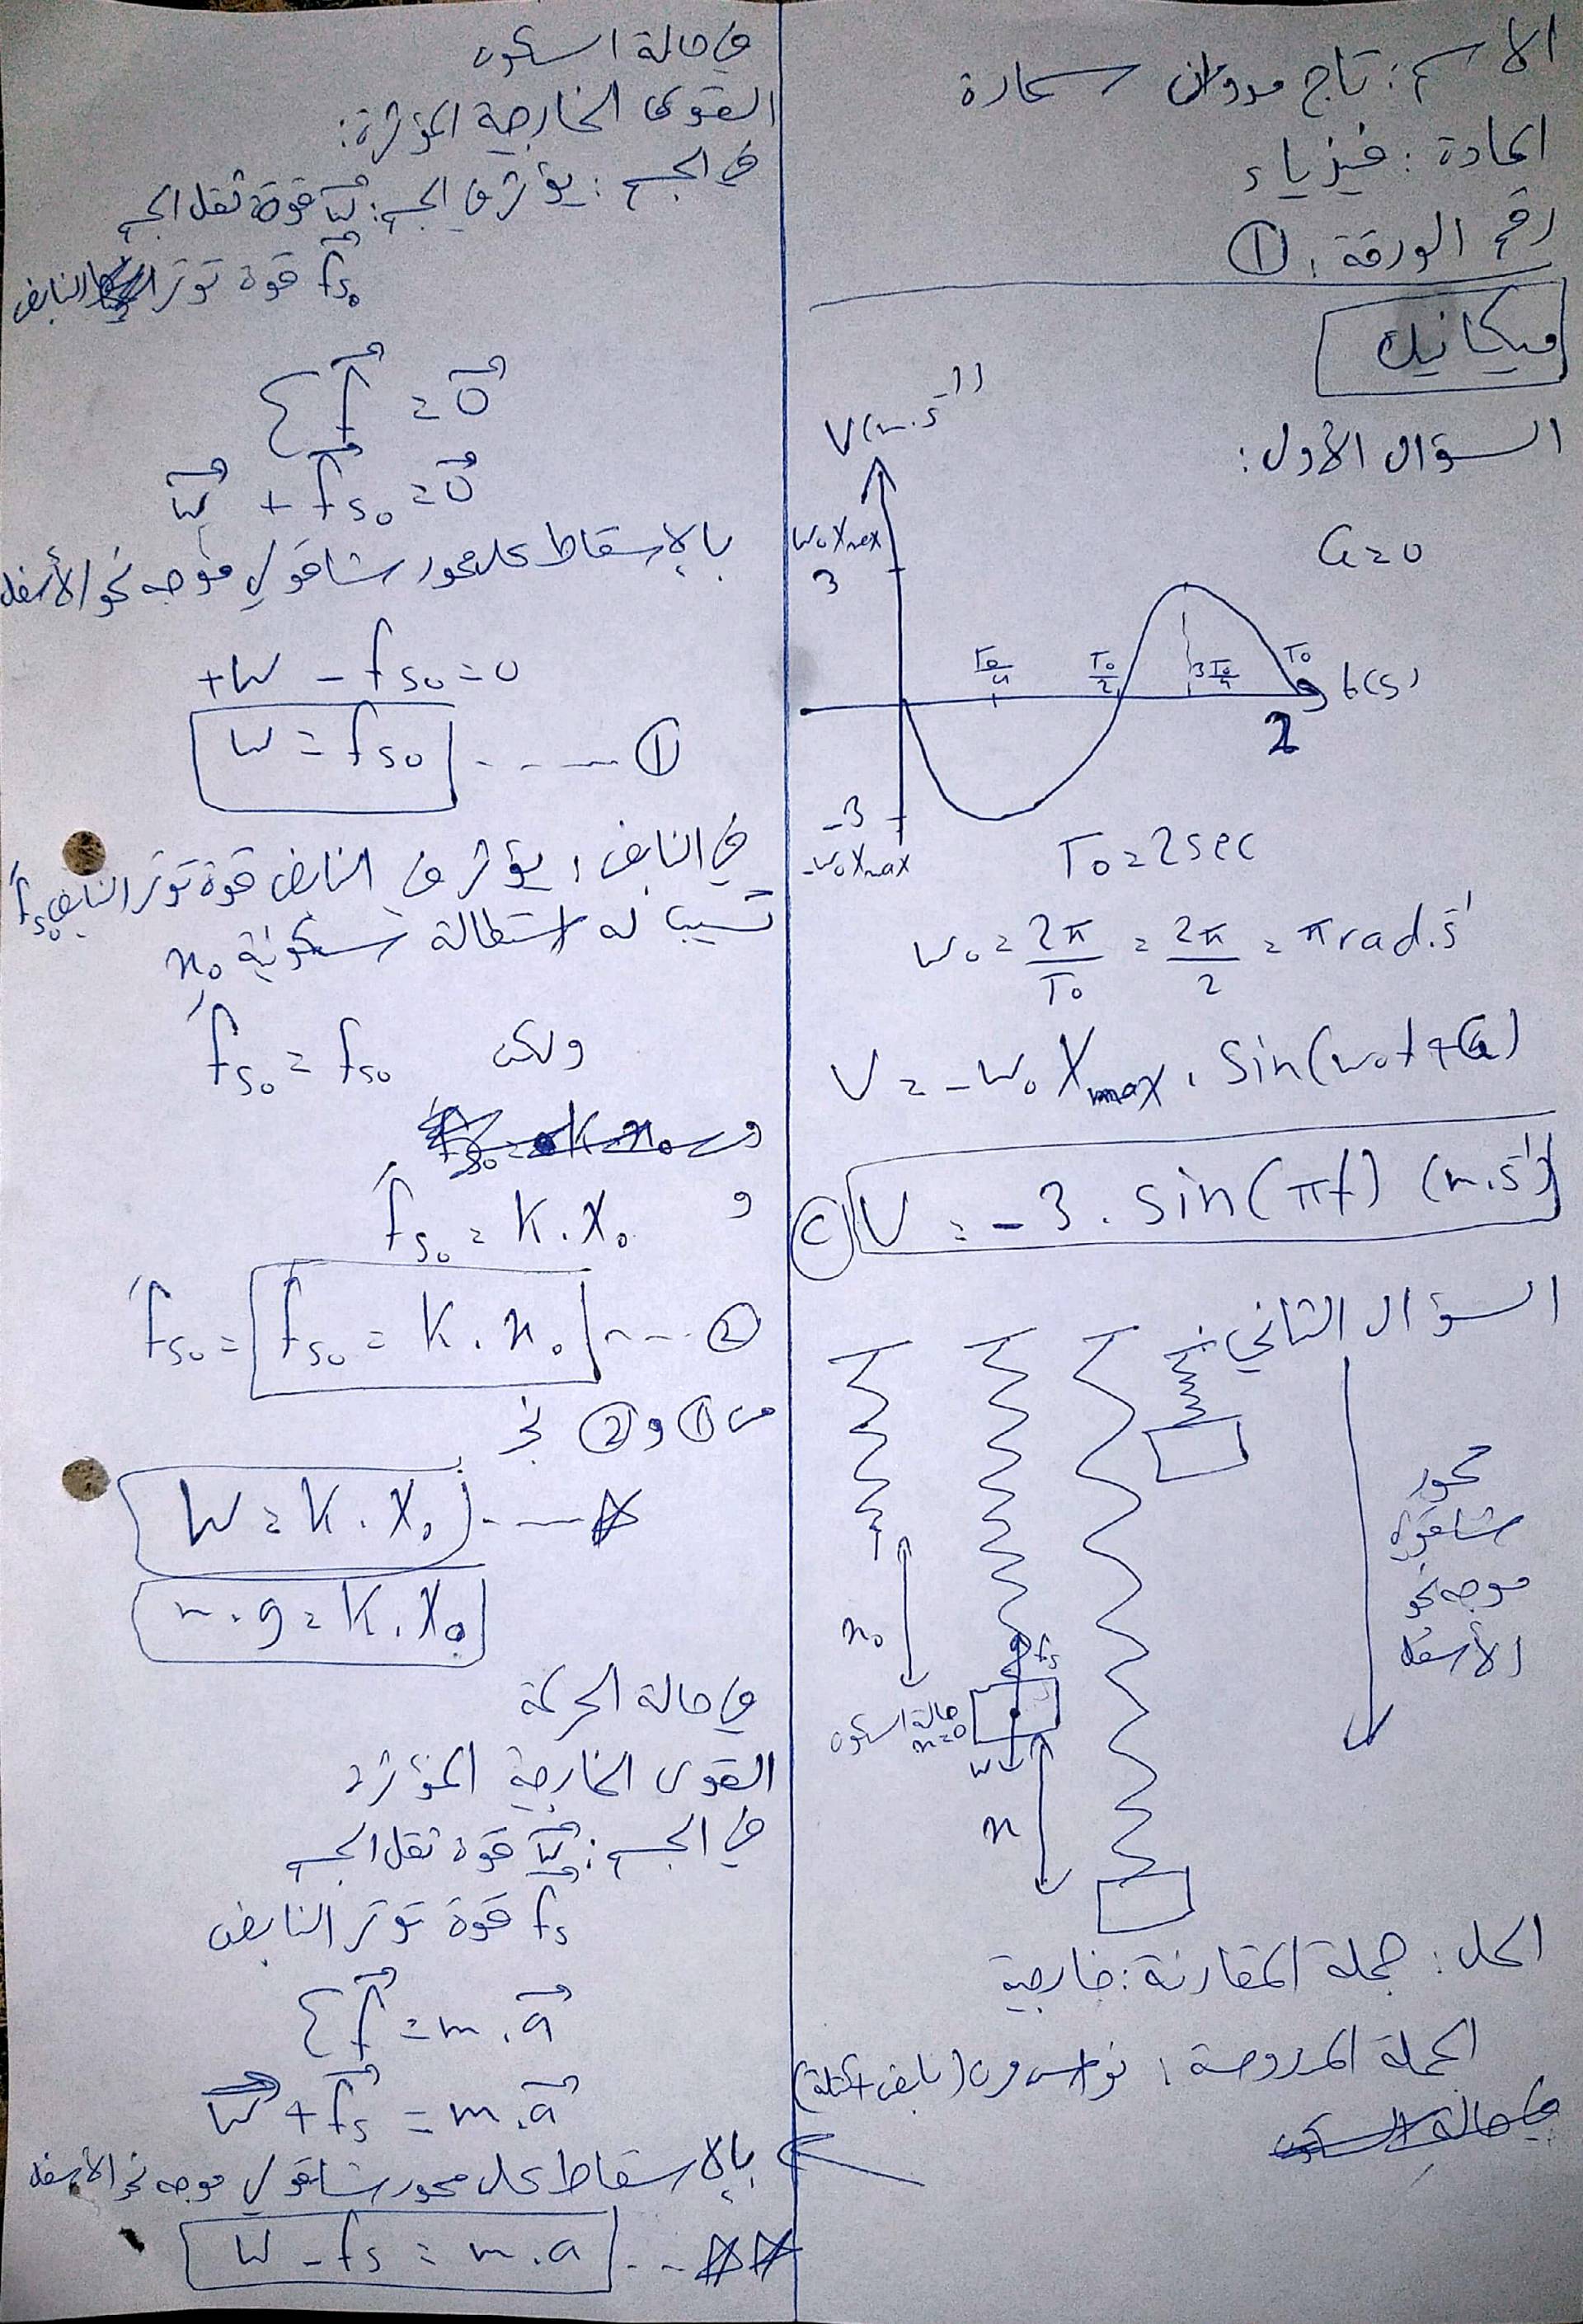 الاسم: تاج مروان سمارة
المادة: فيزياء
رقم الورقة: ①
ميكانيك
السؤال الأول:
V(m.s⁻¹)
ω₀Xmax
3
T₀/4
T₀/2
3T₀/4
T₀
t(s)
2
-3
-ω₀Xmax
T₀ = 2 sec
ω₀ = 2π/T₀ = 2π/2 = π rad.s⁻¹
V = -ω₀ Xmax . sin(ω₀t + φ)
C V = -3 . sin(πt) (m.s⁻¹)
السؤال الثاني:
محور
شاقولي
موجه نحو
الأسفل
x₀
fs
حالة السكون
x=0
w
x
الحل: جملة المقارنة: خارجية
الجملة المدروسة: نواس مرن (نابض + كتلة)
في حالة السكون
القوى الخارجية المؤثرة:
في الجسم: يؤثر في الجسم: w قوة ثقل الجسم
fs₀ قوة توتر النابض
Σf = 0
w + fs₀ = 0
بالإسقاط على محور شاقولي موجه نحو الأسفل
+w - fs₀ = 0
w = fs₀ ---- ①
في النابض: يؤثر في النابض قوة توتر النابض f's₀
تسبب له استطالة سكونية x₀
f's₀ = fs₀ ولكن
و f's₀ = K.x₀
f's₀ = fs₀ = K.x₀ --- ②
من ① و ② نجد
w = K.x₀ ---- ☆
m.g = K.x₀
في حالة الحركة
القوى الخارجية المؤثرة
في الجسم: w قوة ثقل الجسم
fs قوة توتر النابض
Σf = m.a
w + fs = m.a
بالإسقاط على محور شاقولي موجه نحو الأسفل
w - fs = m.a --- ☆☆